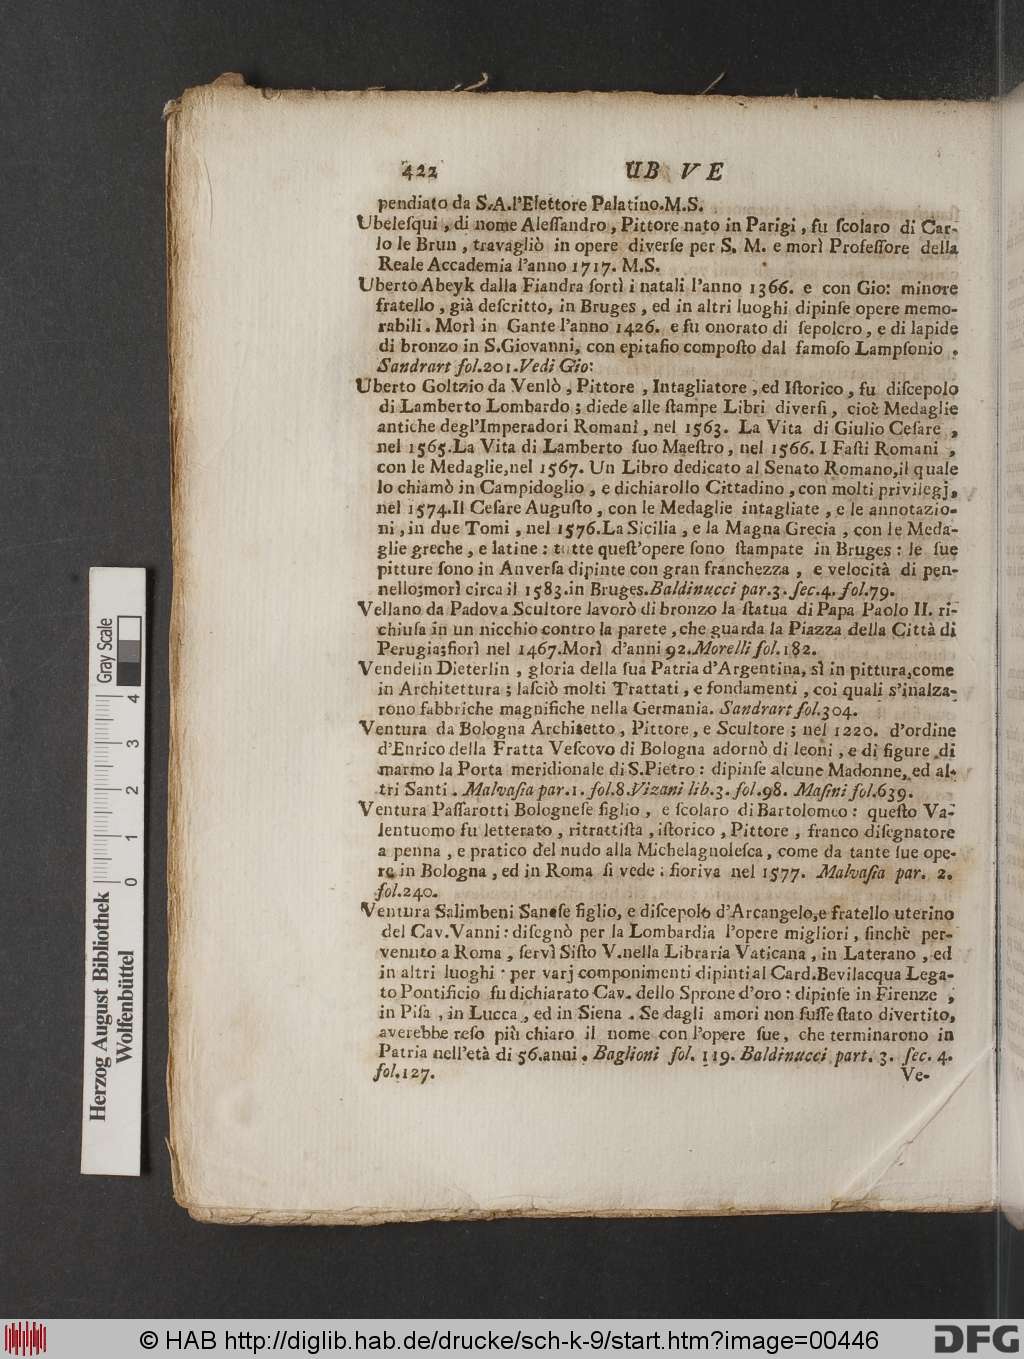 422 UB VE
pendiato da S.A.l'Elettore Palatino.M.S.
Ubeleſqui , di nome Aleſſandro , Pittore nato in Parigi , fu ſcolaro di Car-
lo le Brun , travagliò in opere diverſe per S. M. e morì Profeſſore della
Reale Accademia l'anno 1717. M.S.
Uberto Abeyk dalla Fiandra ſortì i natali l'anno 1366. e con Gio: minore
fratello , già deſcritto, in Bruges , ed in altri luoghi dipinſe opere memo-
rabili . Morì in Gante l'anno 1426. e fu onorato di ſepolcro , e di lapide
di bronzo in S.Giovanni, con epitafio compoſto dal famoſo Lampſonio .
Sandrart fol.201.Vedi Gio:
Uberto Goltzio da Venlò , Pittore , Intagliatore , ed Iſtorico , fu diſcepolo
di Lamberto Lombardo ; diede alle ſtampe Libri diverſi , cioè Medaglie
antiche degl'Imperadori Romani , nel 1563. La Vita di Giulio Ceſare ,
nel 1565.La Vita di Lamberto ſuo Maeſtro , nel 1566. I Faſti Romani ,
con le Medaglie,nel 1567. Un Libro dedicato al Senato Romano,il quale
lo chiamò in Campidoglio , e dichiarollo Cittadino , con molti privilegj,
nel 1574.Il Ceſare Auguſto , con le Medaglie intagliate , e le annotazio-
ni , in due Tomi , nel 1576.La Sicilia , e la Magna Grecia , con le Meda-
glie greche , e latine : tutte queſt'opere ſono ſtampate in Bruges : le ſue
pitture ſono in Anverſa dipinte con gran franchezza , e velocità di pen-
nello;morì circa il 1583.in Bruges.Baldinucci par.3. ſec.4. fol.79.
Vellano da Padova Scultore lavorò di bronzo la ſtatua di Papa Paolo II. ri-
chiuſa in un nicchio contro la parete , che guarda la Piazza della Città di
Perugia;fiorì nel 1467.Morì d'anni 92.Morelli fol.182.
Vendelin Dieterlin , gloria della ſua Patria d'Argentina, sì in pittura,come
in Architettura ; laſciò molti Trattati , e fondamenti , coi quali s'inalza-
rono fabbriche magnifiche nella Germania. Sandrart fol.304.
Ventura da Bologna Architetto , Pittore , e Scultore ; nel 1220. d'ordine
d'Enrico della Fratta Veſcovo di Bologna adornò di leoni , e di figure di
marmo la Porta meridionale di S.Pietro : dipinſe alcune Madonne, ed al-
tri Santi . Malvaſia par.1. fol.8.Vizani lib.3. fol.98. Maſini fol.639.
Ventura Paſſarotti Bologneſe figlio , e ſcolaro di Bartolomeo : queſto Va-
lentuomo fu letterato , ritrattiſta , iſtorico , Pittore , franco diſegnatore
a penna , e pratico del nudo alla Michelagnoleſca , come da tante ſue ope-
re in Bologna , ed in Roma ſi vede ; fioriva nel 1577. Malvaſia par. 2.
fol.240.
Ventura Salimbeni Saneſe figlio, e diſcepolo d'Arcangelo,e fratello uterino
del Cav.Vanni : diſegnò per la Lombardia l'opere migliori , ſinchè per-
venuto a Roma , ſervì Siſto V.nella Libraria Vaticana , in Laterano , ed
in altri luoghi : per varj componimenti dipinti al Card.Bevilacqua Lega-
to Pontificio fu dichiarato Cav. dello Sprone d'oro : dipinſe in Firenze ,
in Piſa , in Lucca , ed in Siena . Se dagli amori non fuſſe ſtato divertito,
averebbe reſo più chiaro il nome con l'opere ſue , che terminarono in
Patria nell'età di 56.anni . Baglioni fol. 119. Baldinucci part. 3. ſec. 4.
fol.127.
Ve-
Herzog August Bibliothek
Wolfenbüttel
Gray Scale
0 1 2 3 4
© HAB http://diglib.hab.de/drucke/sch-k-9/start.htm?image=00446
DFG